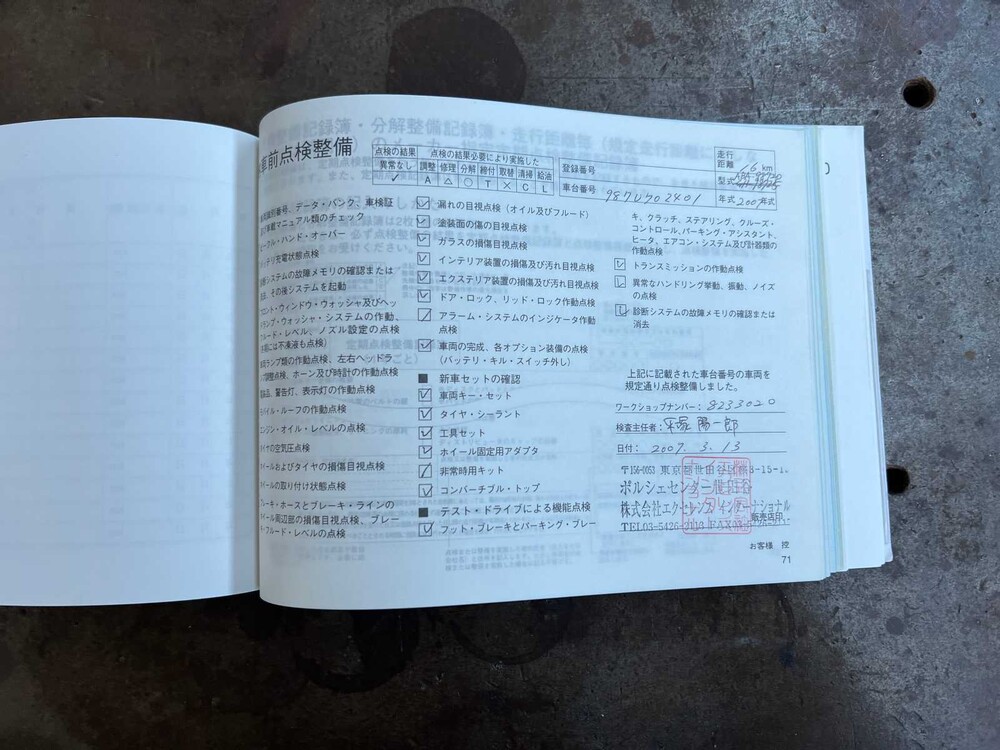 車前点検整備
点検の結果 点検の結果必要により実施した
異常なし 調整 修理 分解 締付 取替 清掃 給油
✓ A △ ○ T × C L
登録番号
車台番号 987U702401
走行距離 16 km
型式
年式 2007年式
識別番号、データ・バンク、車検証
及び車載マニュアル類のチェック
ハンド・オーバー
バッテリ充電状態点検
診断システムの故障メモリの確認または
消去、その後システムを起動
フロント・ウィンドウ・ウォッシャ及びヘッ
ドランプ・ウォッシャ・システムの作動、
フルード・レベル、ノズル設定の点検
には不凍液も点検)
ランプ類の作動点検、左右ヘッドラ
調整点検、ホーン及び時計の作動点検
警告灯、表示灯の作動点検
モバイル・ルーフの作動点検
エンジン・オイル・レベルの点検
タイヤの空気圧点検
ホイールおよびタイヤの損傷目視点検
ホイールの取り付け状態点検
ブレーキ・ホースとブレーキ・ラインの
ホイール周辺部の損傷目視点検、ブレー
キ・フルード・レベルの点検
漏れの目視点検(オイル及びフルード)
塗装面の傷の目視点検
ガラスの損傷目視点検
インテリア装置の損傷及び汚れ目視点検
エクステリア装置の損傷及び汚れ目視点検
ドア・ロック、リッド・ロック作動点検
アラーム・システムのインジケータ作動
点検
車両の完成、各オプション装備の点検
(バッテリ・キル・スイッチ外し)
■ 新車セットの確認
車両キー・セット
タイヤ・シーラント
工具セット
ホイール固定用アダプタ
非常時用キット
コンバーチブル・トップ
■ テスト・ドライブによる機能点検
フット・ブレーキとパーキング・ブレー
キ、クラッチ、ステアリング、クルーズ・
コントロール、パーキング・アシスタント、
ヒータ、エアコン・システム及び計器類の
作動点検
トランスミッションの作動点検
異常なハンドリング挙動、振動、ノイズ
の点検
診断システムの故障メモリの確認または
消去
上記に記載された車台番号の車両を
規定通り点検整備しました。
ワークショップナンバー: 8233020
検査主任者: 平塚陽一郎
日付: 2007. 3. 13
〒156-0053 東京都世田谷区桜3-15-1
ポルシェセンター世田谷
株式会社エクセレンス インターナショナル
TEL03-5426 FAX03
販売店印
お客様 控
71